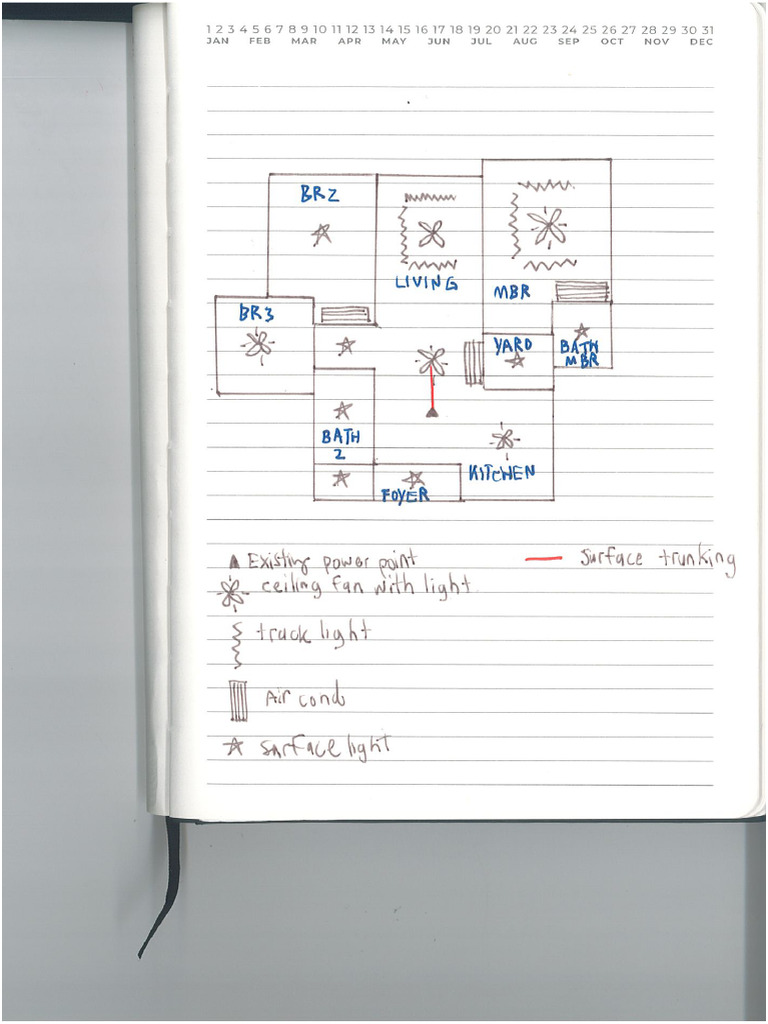 1 2 3 4 5 6 7 8 9 10 11 12 13 14 15 16 17 18 19 20 21 22 23 24 25 26 27 28 29 30 31
JAN FEB MAR APR MAY JUN JUL AUG SEP OCT NOV DEC
BR2
LIVING
MBR
BR3
YARD
BATH
MBR
BATH
2
KITCHEN
FOYER
Existing power point
surface trunking
ceiling fan with light
track light
Air cond
surface light